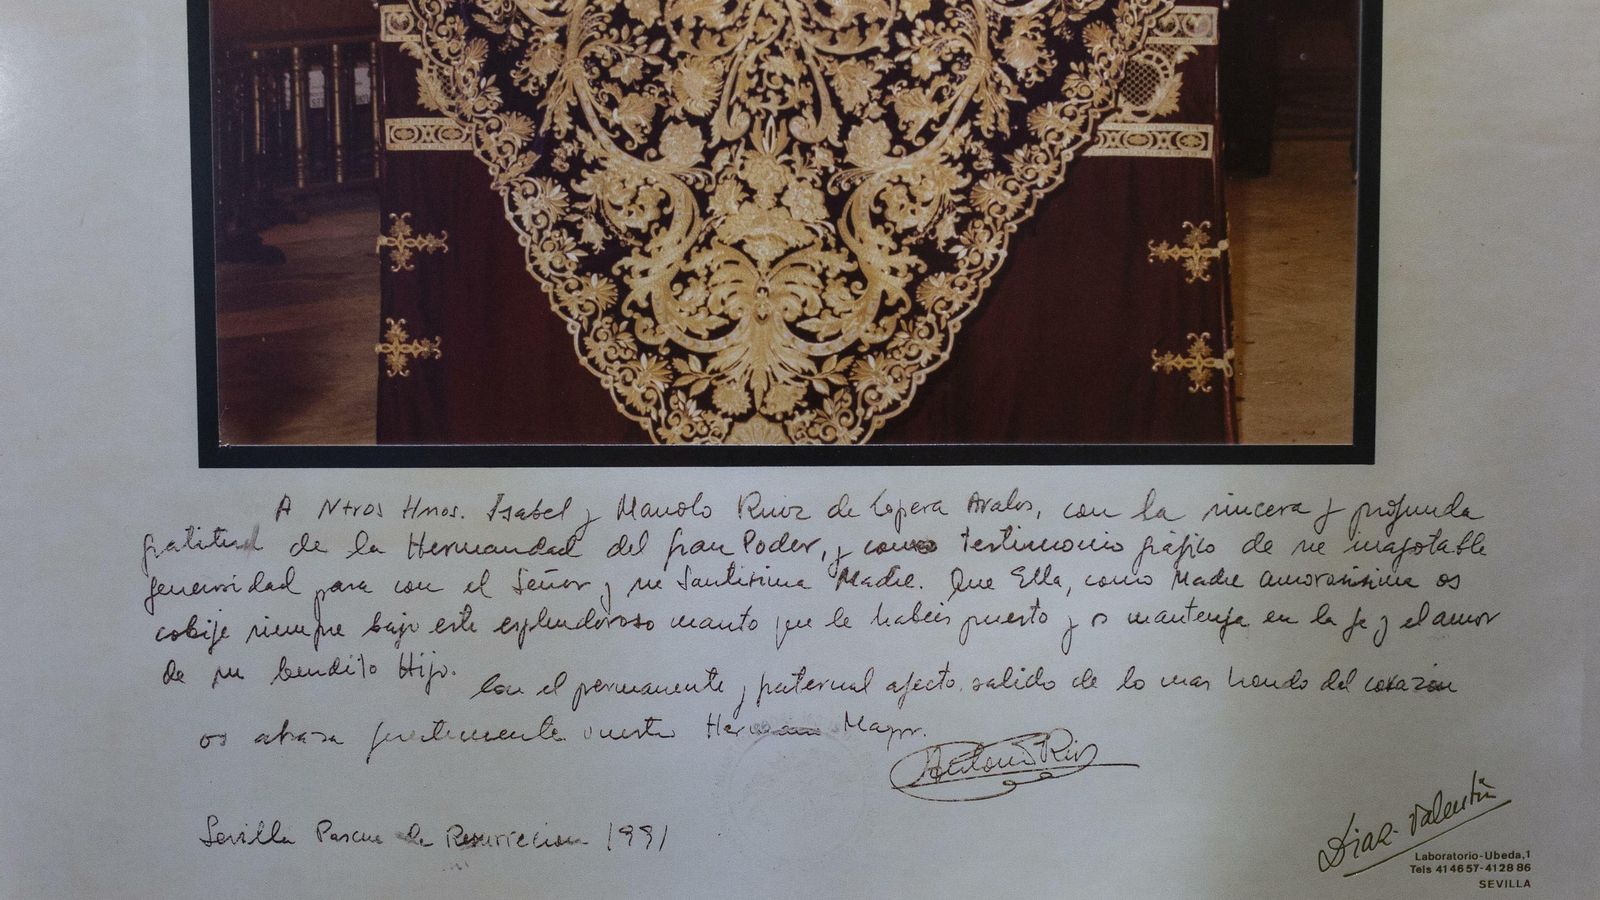 A Ntros Hnos. Isabel y Manolo Ruiz de Lopera Avalos, con la sincera y profunda
gratitud de la Hermandad del Gran Poder, y como testimonio gráfico de su inagotable
generosidad para con el Señor y su Santísima Madre. Que Ella, como Madre amorosísima os
cobije siempre bajo este esplendoroso manto que le habéis puesto y os mantenga en la fe y el amor
de su bendito Hijo.
Con el permanente y paternal afecto, salido de lo mas hondo del corazón
os abraza fuertemente vuestro Hermano Mayor.
Antonio Ríos
Sevilla Pascua de Resurreccion 1991
Diaz-Valentín
Laboratorio-Ubeda,1
Tels 41 46 57 - 41 28 86
SEVILLA